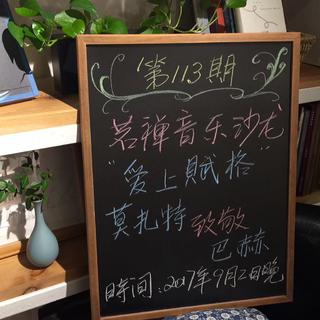 第113期
茗禅音乐沙龙
“爱上賦格”
莫扎特致敬
巴赫
時间:2017年9月2日晚